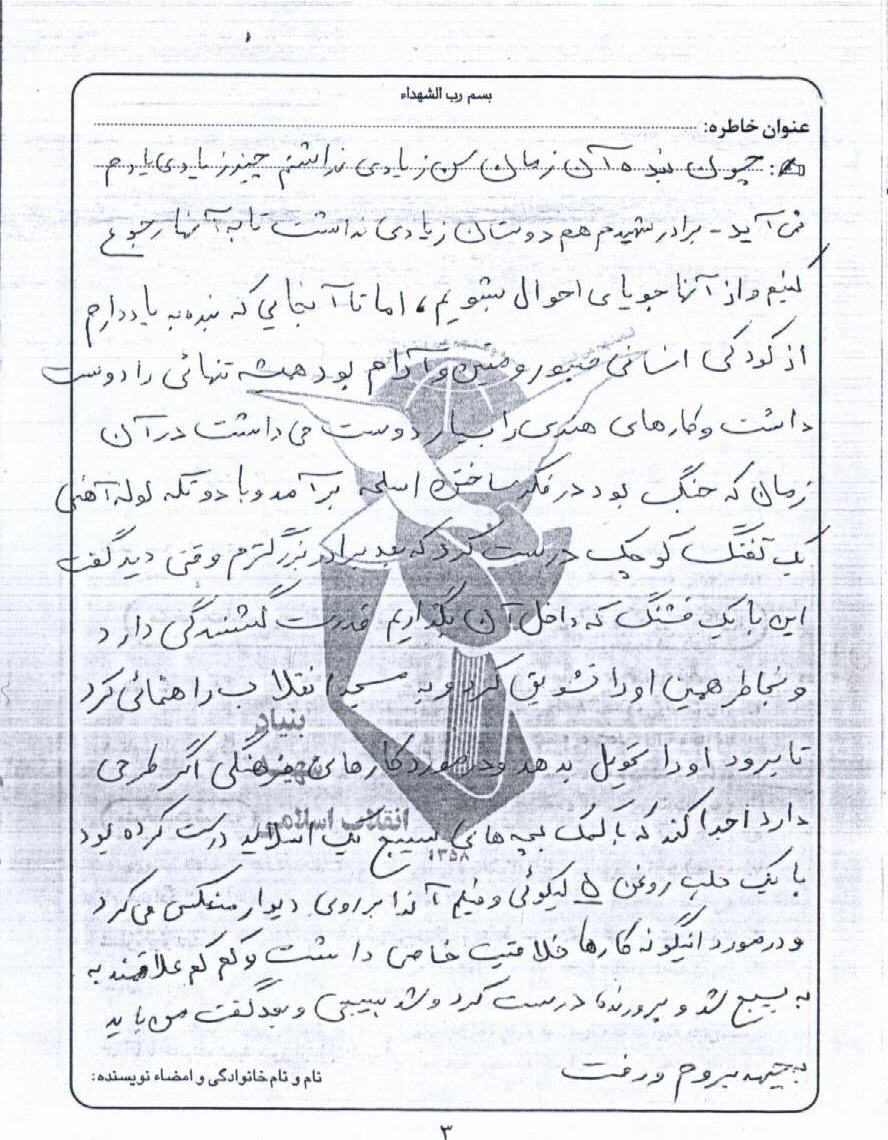 بسم رب الشهداء
عنوان خاطره:
چون بنده آن زمان سن زیادی نداشتم چیز زیادی یادم
نمی آید - برادر شهیدم هم دوستان زیادی نداشت تا به آنها رجوع
کنیم و از آنها جویای احوال بشویم، اما تا آنجایی که بنده به یاد دارم
از کودکی انسانی صبور و متین و آرام بود همشه تنهائی را دوست
داشت و کارهای هنری را بسیار دوست می داشت در آن
زمان که جنگ بود در فکر ساختن اسلحه برآمد و با دو تکه لوله آهنی
یک تفنگ کوچک درست کرد که بعد برادر بزرگترم وقتی دید گفت
این با یک فشنگ که داخل آن بگذاریم قدرت کشندگی دارد
و بخاطر همین او را تشویق کرد و به مسجد انقلاب راهنمائی کرد
تا برود او را تحویل بدهد و در مورد کارهای فرهنگی اگر طرحی
دارد اجرا کند که با کمک بچه های بسیج یک اسلاید درست کرده بود
با یک حلب روغن ۵ کیلوئی و فیلم آنرا بر روی دیوار منعکس می کرد
و در مورد اینگونه کارها خلاقیت خاصی داشت و کم کم علاقمند به
به بسیج شد و پرونده درست کرد و شد بسیجی و بعد گفت من باید
به جبهه بروم و رفت
نام و نام خانوادگی و امضاء نویسنده:
بنیاد
شهید
انقلاب اسلامی
۱۳۵۸
۳